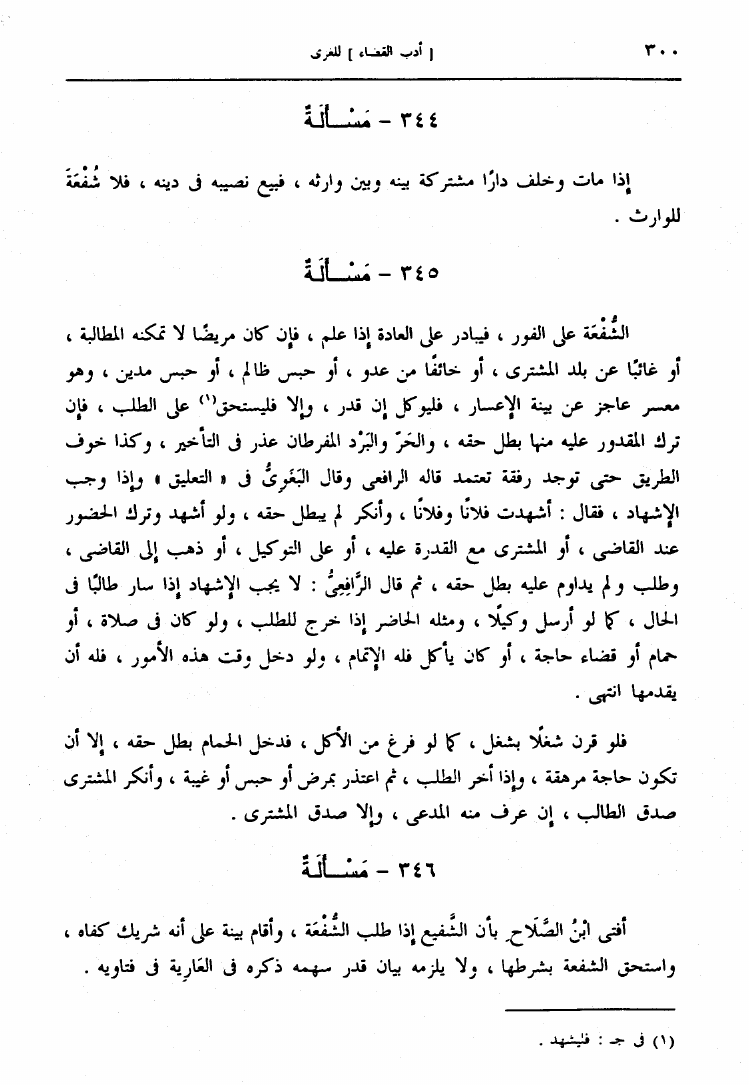 ٣٠٠ [ أدب القضاء ] للغزى
٣٤٤ - مَسْأَلَةٌ
إذا مات وخلف دارًا مشتركة بينه وبين وارثه ، فبيع نصيبه فى دينه ، فلا شُفْعَةَ
للوارث .
٣٤٥ - مَسْأَلَةٌ
الشُّفْعَة على الفور ، فيبادر على العادة إذا علم ، فإن كان مريضًا لا تمكنه المطالبة ،
أو غائبًا عن بلد المشترى ، أو خائفًا من عدو ، أو حبس ظالم ، أو حبس مدين ، وهو
معسر عاجز عن بينة الإعسار ، فليوكل إن قدر ، وإلا فليستحق(١) على الطلب ، فإن
ترك المقدور عليه منها بطل حقه ، والحَرّ والبَرْد المفرطان عذر فى التأخير ، وكذا خوف
الطريق حتى توجد رفقة تعتمد قاله الرافعى وقال البَغَوِىُّ فى « التعليق » وإذا وجب
الإشهاد ، فقال : أشهدت فلانًا وفلانًا ، وأنكر لم يبطل حقه ، ولو أشهد وترك الحضور
عند القاضى ، أو المشترى مع القدرة عليه ، أو على التوكيل ، أو ذهب إلى القاضى ،
وطلب ولم يداوم عليه بطل حقه ، ثم قال الرَّافِعِىُّ : لا يجب الإشهاد إذا سار طالبًا فى
الحال ، كما لو أرسل وكيلًا ، ومثله الحاضر إذا خرج للطلب ، ولو كان فى صلاة ، أو
حمام أو قضاء حاجة ، أو كان يأكل فله الإتمام ، ولو دخل وقت هذه الأمور ، فله أن
يقدمها انتهى .
فلو قرن شغلًا بشغل ، كما لو فرغ من الأكل ، فدخل الحمام بطل حقه ، إلا أن
تكون حاجة مرهقة ، وإذا أخر الطلب ، ثم اعتذر بمرض أو حبس أو غيبة ، وأنكر المشترى
صدق الطالب ، إن عرف منه المدعى ، وإلا صدق المشترى .
٣٤٦ - مَسْأَلَةٌ
أفتى ابْنُ الصَّلَاحِ بأن الشَّفيع إذا طلب الشُّفْعَة ، وأقام بينة على أنه شريك كفاه ،
واستحق الشفعة بشرطها ، ولا يلزمه بيان قدر سهمه ذكره فى العَارِية فى فتاويه .
(١) فى جـ : فليشهد .